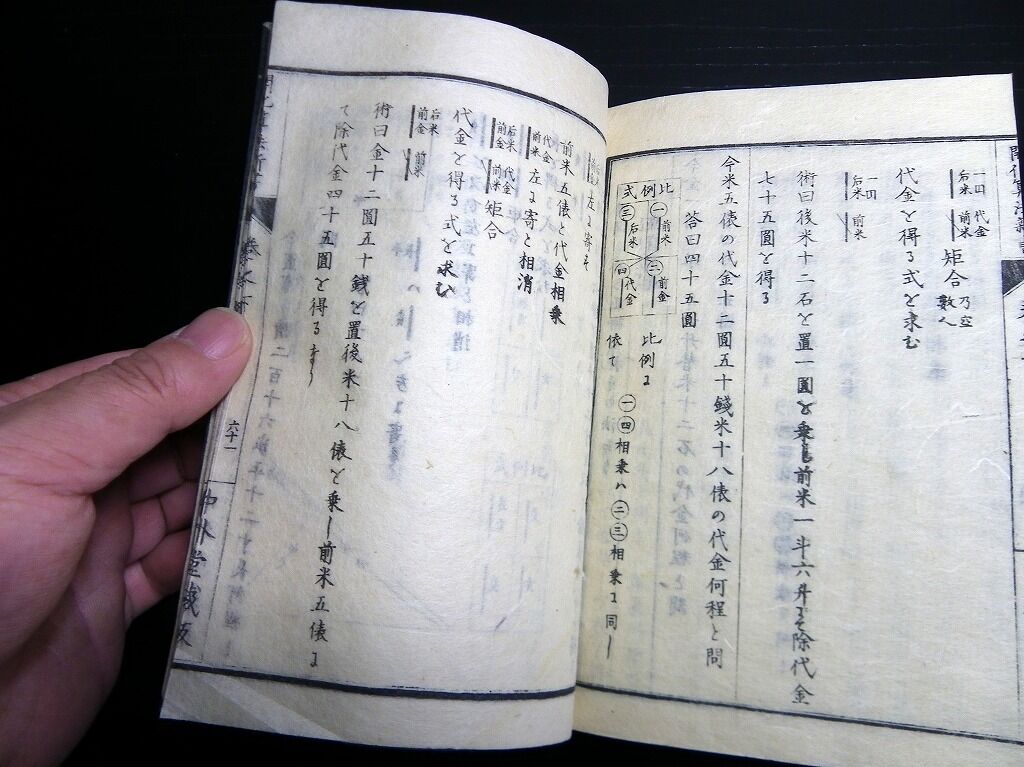 一円 代金
后米 前米
矩合
代金と得る式と求む
一円
后米 前米
術曰後米十二石と置一圓と乗し前米一斗六升にて除代金
七十五圓と得る
今米五俵の代金十二圓五十銭米十八俵の代金何程と問
答曰四十五圓
比例式
㊀前米
㊁前金
㊂后米
㊃代金
比例に
依て㊀㊃相乗ハ㊁㊂相乗に同し
左に寄す
前米五俵と代金相乗
代金
前米 左に寄と相消
后米 代金
前金 前米 矩合
代金と得る式と求む
后米
前金 前米
術曰金十二圓五十銭と置後米十八俵と乗し前米五俵に
て除代金四十五圓と得るなり
六十一